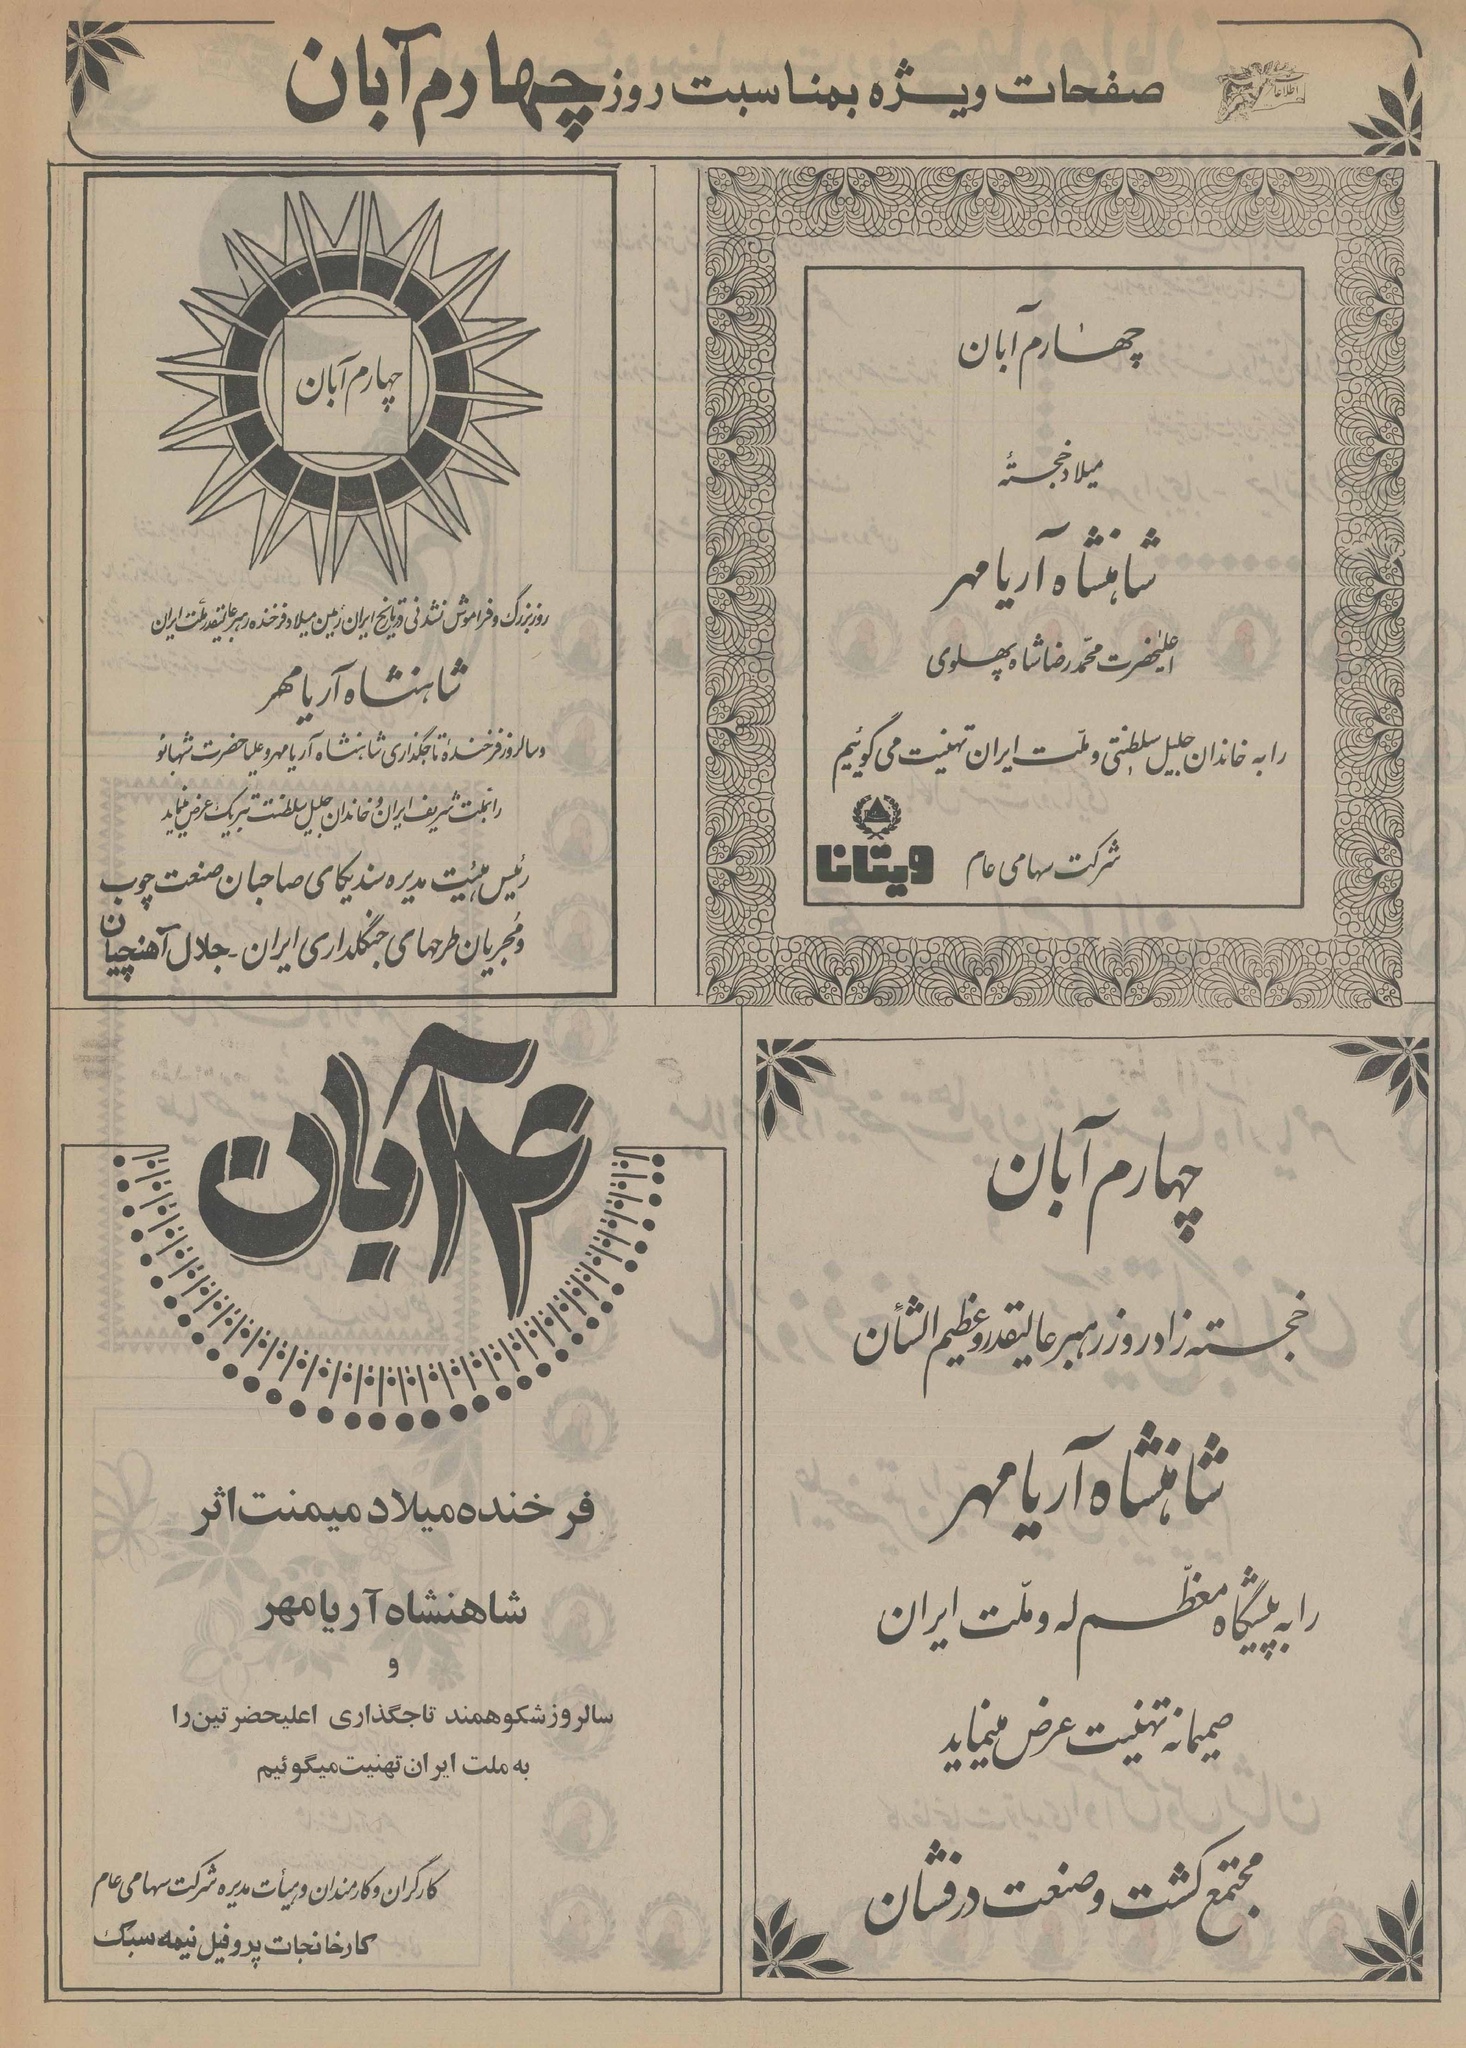 صفحات ویژه بمناسبت روز چهارم آبان
اطلاعات
چهارم آبان
میلاد خجستهٔ
شاهنشاه آریامهر
اعلیحضرت محمد رضا شاه پهلوی
را به خاندان جلیل سلطنتی و ملت ایران تهنیت می گوئیم
شرکت سهامی عام ویتانا
چهارم آبان
روز بزرگ و فراموش نشدنی در تاریخ ایران زمین میلاد فرخنده رهبر عالیقدر ملت ایران
شاهنشاه آریامهر
و سالروز فرخندهٔ تاجگذاری شاهنشاه آریامهر و علیاحضرت شهبانو
را بملت شریف ایران و خاندان جلیل سلطنت تبریک عرض مینماید
رئیس هیئت مدیره سندیکای صاحبان صنعت چوب
و مجریان طرحهای جنگلداری ایران - جلال آهنچیان
چهارم آبان
خجسته زادروز رهبر عالیقدر و عظیم الشأن
شاهنشاه آریامهر
را به پیشگاه معظم له و ملّت ایران
صمیمانه تهنیت عرض مینماید
مجتمع کشت و صنعت درفشان
۴ آبان
فرخنده میلاد میمنت اثر
شاهنشاه آریامهر
و
سالروز شکوهمند تاجگذاری اعلیحضرتین را
به ملت ایران تهنیت میگوئیم
کارگران و کارمندان و هیأت مدیره شرکت سهامی عام
کارخانجات پروفیل نیمه سبک